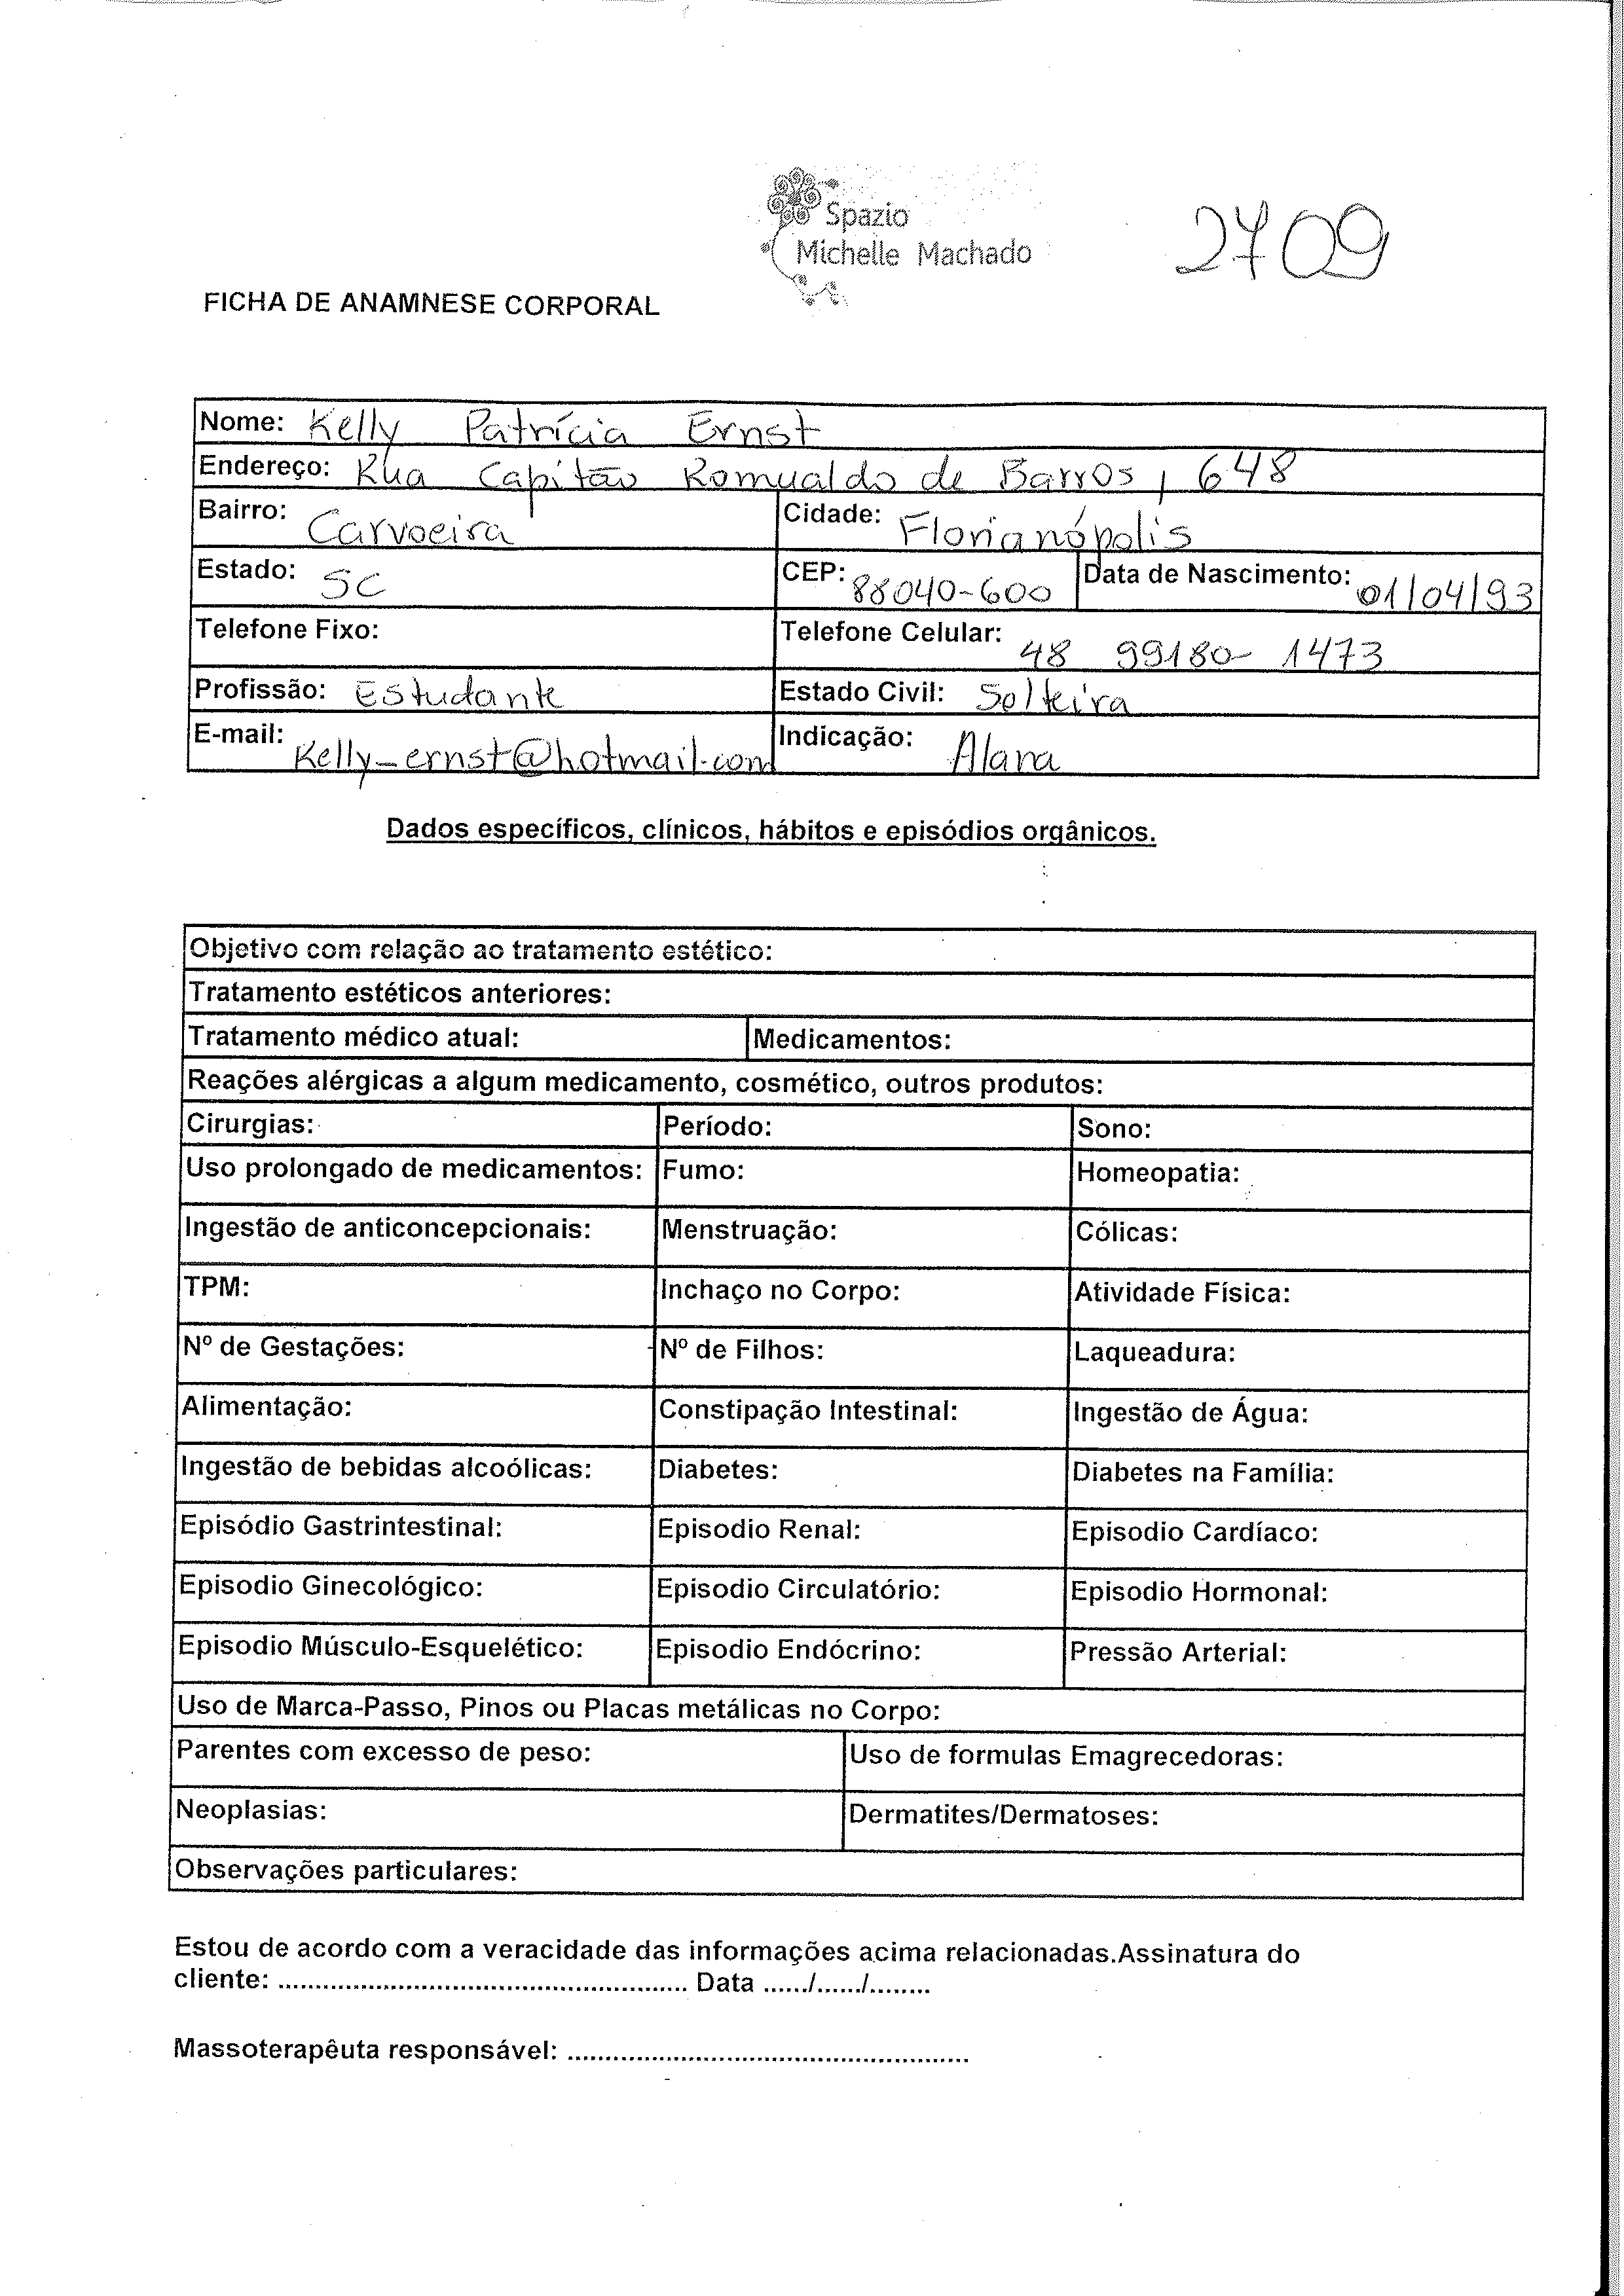 Spazio
Michelle Machado
2709
FICHA DE ANAMNESE CORPORAL
Nome: Kelly Patrícia Ernst
Endereço: Rua Capitão Romualdo de Barros, 648
Bairro: Carvoeira Cidade: Florianópolis
Estado: SC CEP: 88040-600 Data de Nascimento: 01/04/93
Telefone Fixo: Telefone Celular: 48 99180-1473
Profissão: Estudante Estado Civil: Solteira
E-mail: Kelly_ernst@hotmail.com Indicação: Alana
Dados específicos, clínicos, hábitos e episódios orgânicos.
Objetivo com relação ao tratamento estético:
Tratamento estéticos anteriores:
Tratamento médico atual: Medicamentos:
Reações alérgicas a algum medicamento, cosmético, outros produtos:
Cirurgias: Período: Sono:
Uso prolongado de medicamentos: Fumo: Homeopatia:
Ingestão de anticoncepcionais: Menstruação: Cólicas:
TPM: Inchaço no Corpo: Atividade Física:
Nº de Gestações: Nº de Filhos: Laqueadura:
Alimentação: Constipação Intestinal: Ingestão de Água:
Ingestão de bebidas alcoólicas: Diabetes: Diabetes na Família:
Episódio Gastrintestinal: Episodio Renal: Episodio Cardíaco:
Episodio Ginecológico: Episodio Circulatório: Episodio Hormonal:
Episodio Músculo-Esquelético: Episodio Endócrino: Pressão Arterial:
Uso de Marca-Passo, Pinos ou Placas metálicas no Corpo:
Parentes com excesso de peso: Uso de formulas Emagrecedoras:
Neoplasias: Dermatites/Dermatoses:
Observações particulares:
Estou de acordo com a veracidade das informações acima relacionadas.Assinatura do
cliente: ....................................................... Data ....../....../........
Massoterapêuta responsável: ......................................................